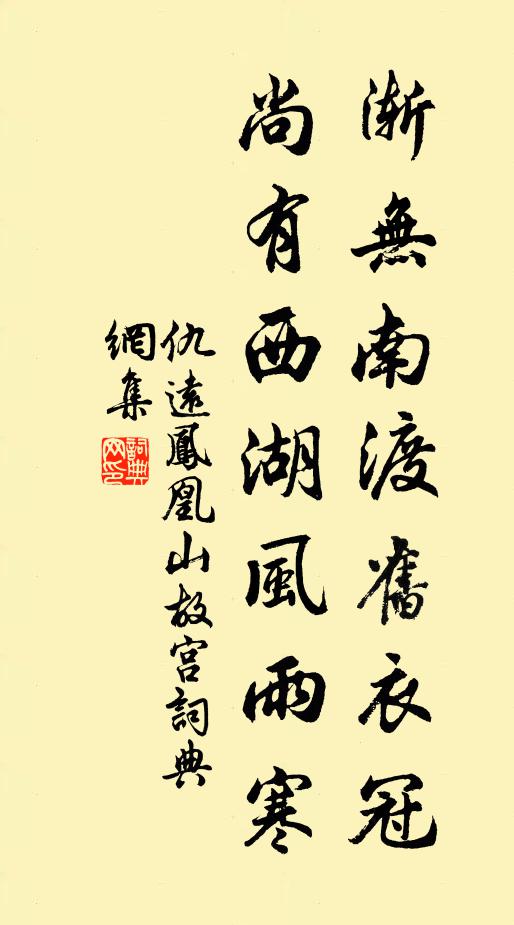 漸無南渡舊衣冠
尚有西湖風雨寒
仇遠鳳凰山故宮詞典
網集
詞典網印